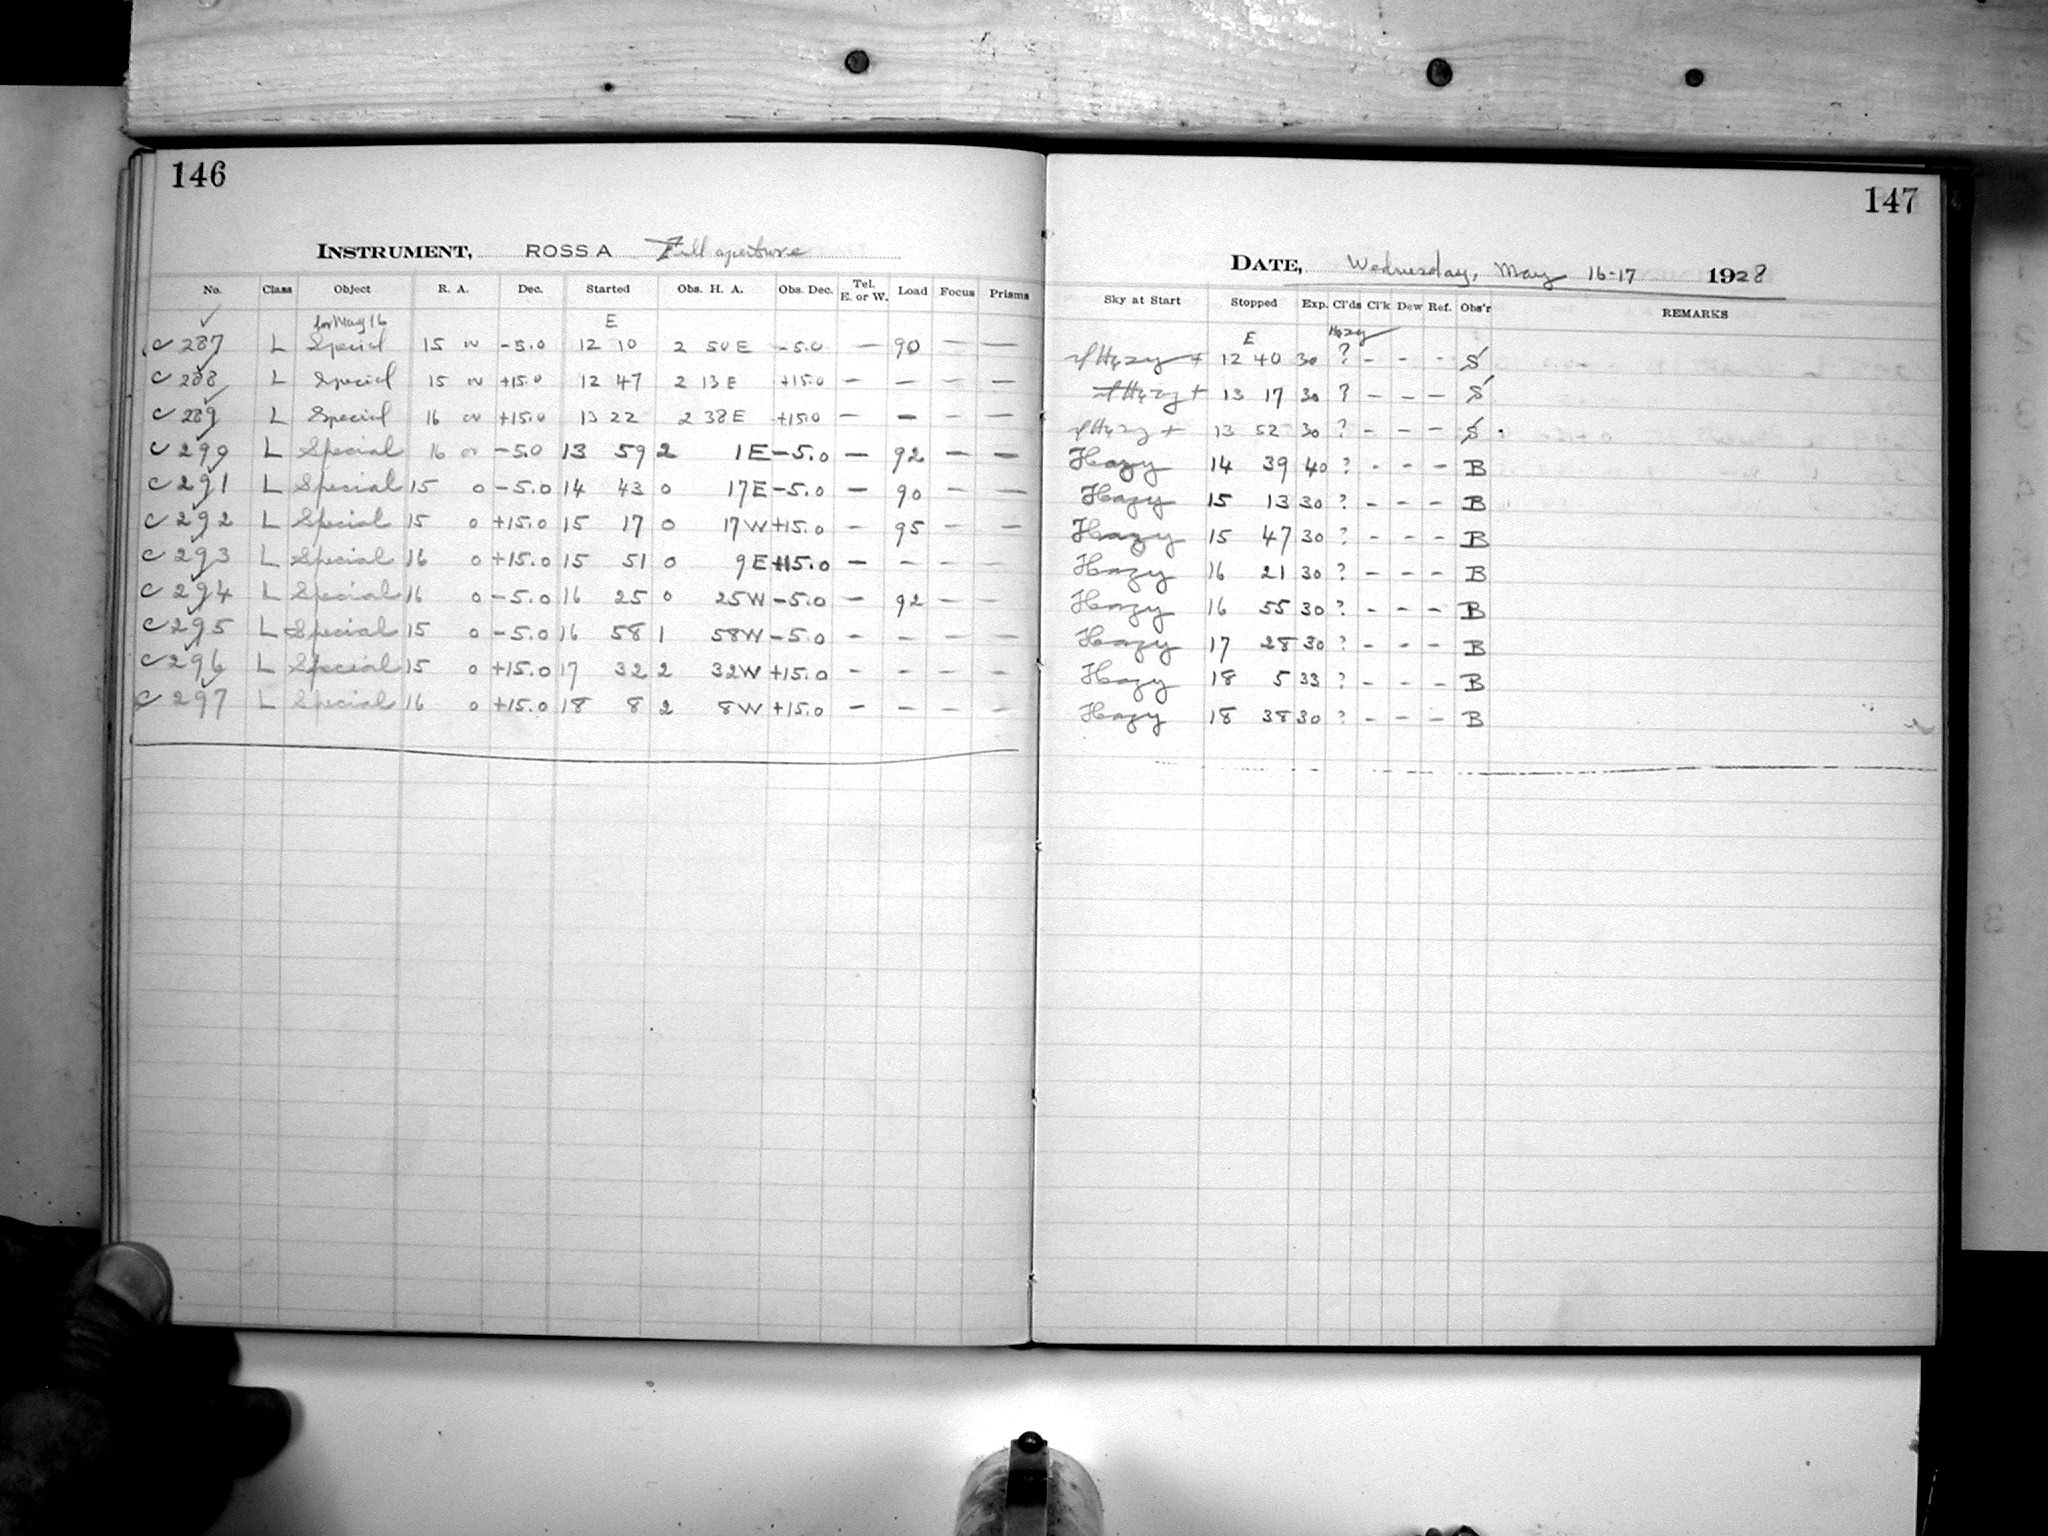 146
INSTRUMENT, ROSS A Full aperture
No. Class Object R. A. Dec. Started Obs. H. A. Obs. Dec. Tel. E. or W. Load Focus Prisms
for May 16 E
C 287 L Special 15 0 -5.0 12 10 2 50 E -5.0 — 90 — —
C 288 L Special 15 0 +15.0 12 47 2 13 E +15.0 — — — —
C 289 L Special 16 0 +15.0 13 22 2 38 E +15.0 — — — —
C 290 L Special 16 0 -5.0 13 59 2 1 E -5.0 — 92 — —
C 291 L Special 15 0 -5.0 14 43 0 17 E -5.0 — 90 — —
C 292 L Special 15 0 +15.0 15 17 0 17 W +15.0 - 95 - —
C 293 L Special 16 0 +15.0 15 51 0 9 E +15.0 — - - -
C 294 L Special 16 0 -5.0 16 25 0 25 W -5.0 — 92 - -
C 295 L Special 15 0 -5.0 16 58 1 58 W -5.0 - - - -
C 296 L Special 15 0 +15.0 17 32 2 32 W +15.0 - - - -
C 297 L Special 16 0 +15.0 18 8 2 8 W +15.0 - - - -
147
DATE, Wednesday, May 16-17 1928
Sky at Start Stopped Exp. Cl'ds Cl'k Dew Ref. Obs'r REMARKS
E Hazy
Hazy + 12 40 30 ? - - - S
Hazy + 13 17 30 ? - - - S
Hazy + 13 52 30 ? - - - S
Hazy 14 39 40 ? - - - B
Hazy 15 13 30 ? - - - B
Hazy 15 47 30 ? - - - B
Hazy 16 21 30 ? - - - B
Hazy 16 55 30 ? - - - B
Hazy 17 28 30 ? - - - B
Hazy 18 5 33 ? - - - B
Hazy 18 38 30 ? - - - B